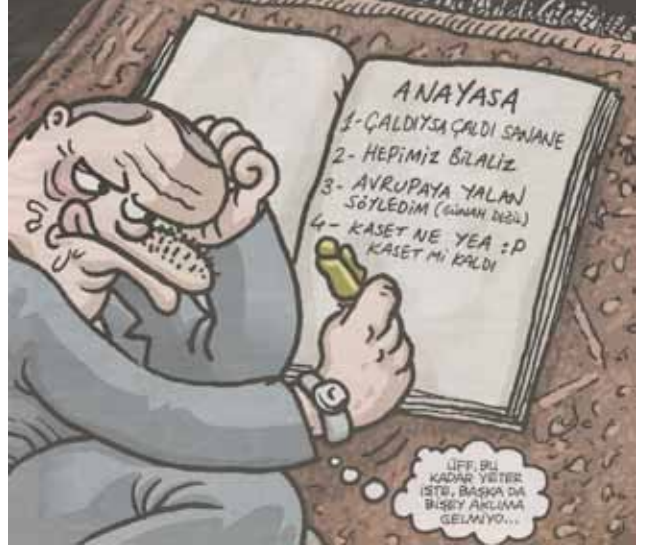 ANAYASA
1- ÇALDIYSA ÇALDI SANANE
2- HEPİMİZ BİLALİZ
3- AVRUPAYA YALAN
SÖYLEDİM (GÜNAH DEĞİL)
4- KASET NE YEA :P
KASET Mİ KALDI
ÜFF, BU
KADAR YETER
İŞTE, BAŞKA DA
BİŞEY AKLIMA
GELMİYO...